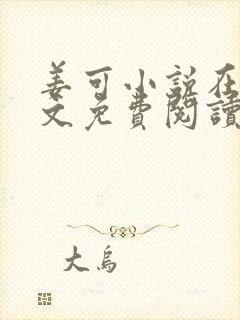 姜可小说在
文免費閱讀
大烏